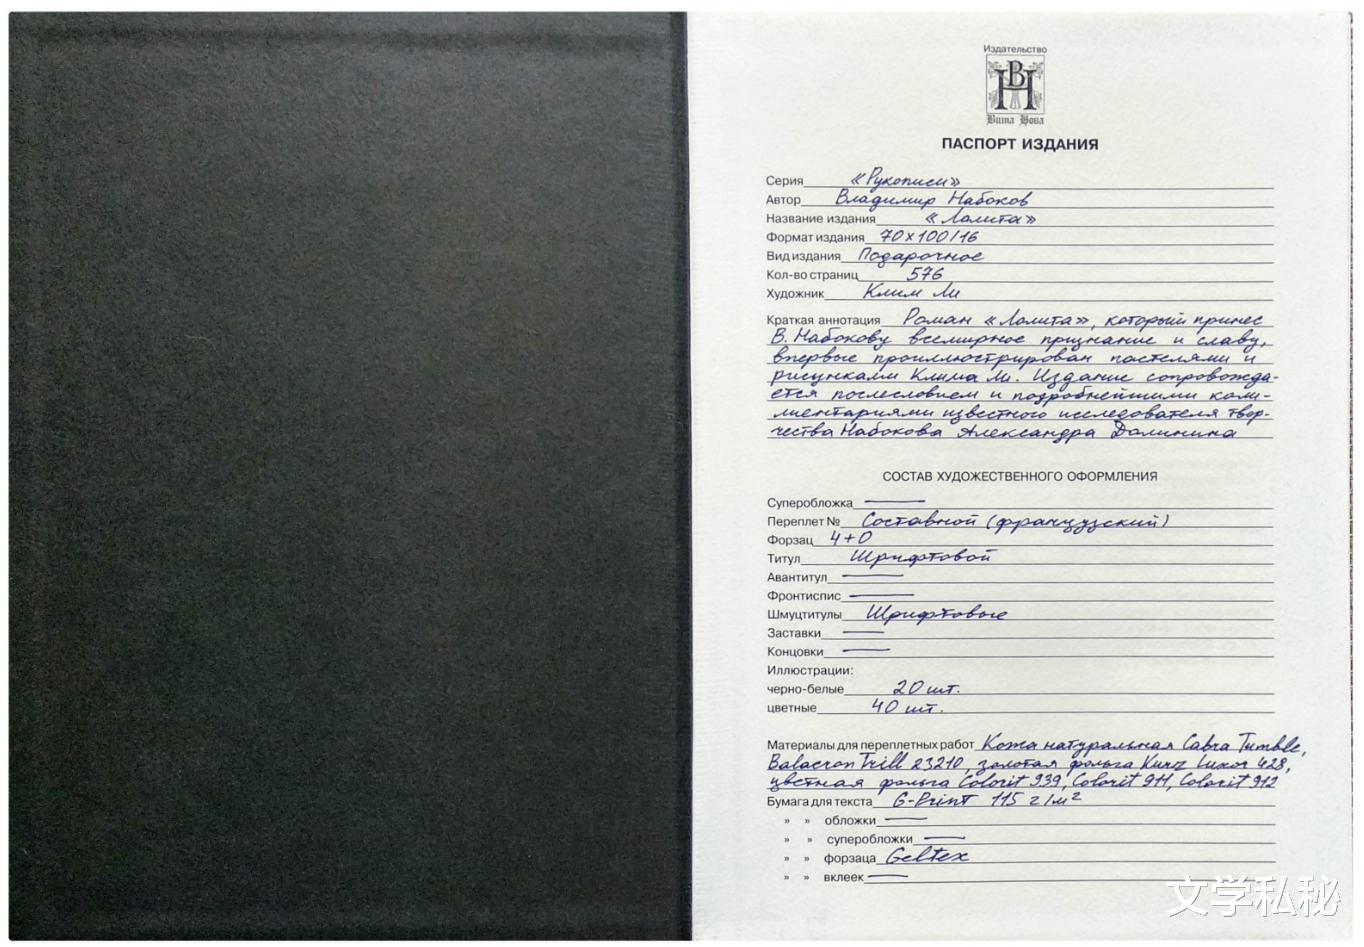 Издательство
ВН
Вита Нова
ПАСПОРТ ИЗДАНИЯ
Серия «Рукописи»
Автор Владимир Набоков
Название издания «Лолита»
Формат издания 70 х 100/16
Вид издания Подарочное
Кол-во страниц 576
Художник Клим Ли
Краткая аннотация Роман «Лолита», который принес
В. Набокову всемирное признание и славу,
впервые проиллюстрирован пастелями и
рисунками Клима Ли. Издание сопровожда-
ется послесловием и подробнейшими ком-
ментариями известного исследователя твор-
чества Набокова Александра Долинина
СОСТАВ ХУДОЖЕСТВЕННОГО ОФОРМЛЕНИЯ
Суперобложка —
Переплет № Составной (французский)
Форзац 4+0
Титул Шрифтовой
Авантитул —
Фронтиспис —
Шмуцтитулы Шрифтовые
Заставки —
Концовки —
Иллюстрации:
черно-белые 20 шт.
цветные 40 шт.
Материалы для переплетных работ Кожа натуральная Cabra Tumble,
Balacron Trill 23210, золотая фольга Kurz Luxor 428,
цветная фольга Colorit 939, Colorit 911, Colorit 912
Бумага для текста G-Print 115 г/м²
» » обложки —
» » суперобложки —
» » форзаца Geltex
» » вклеек —
文学私秘